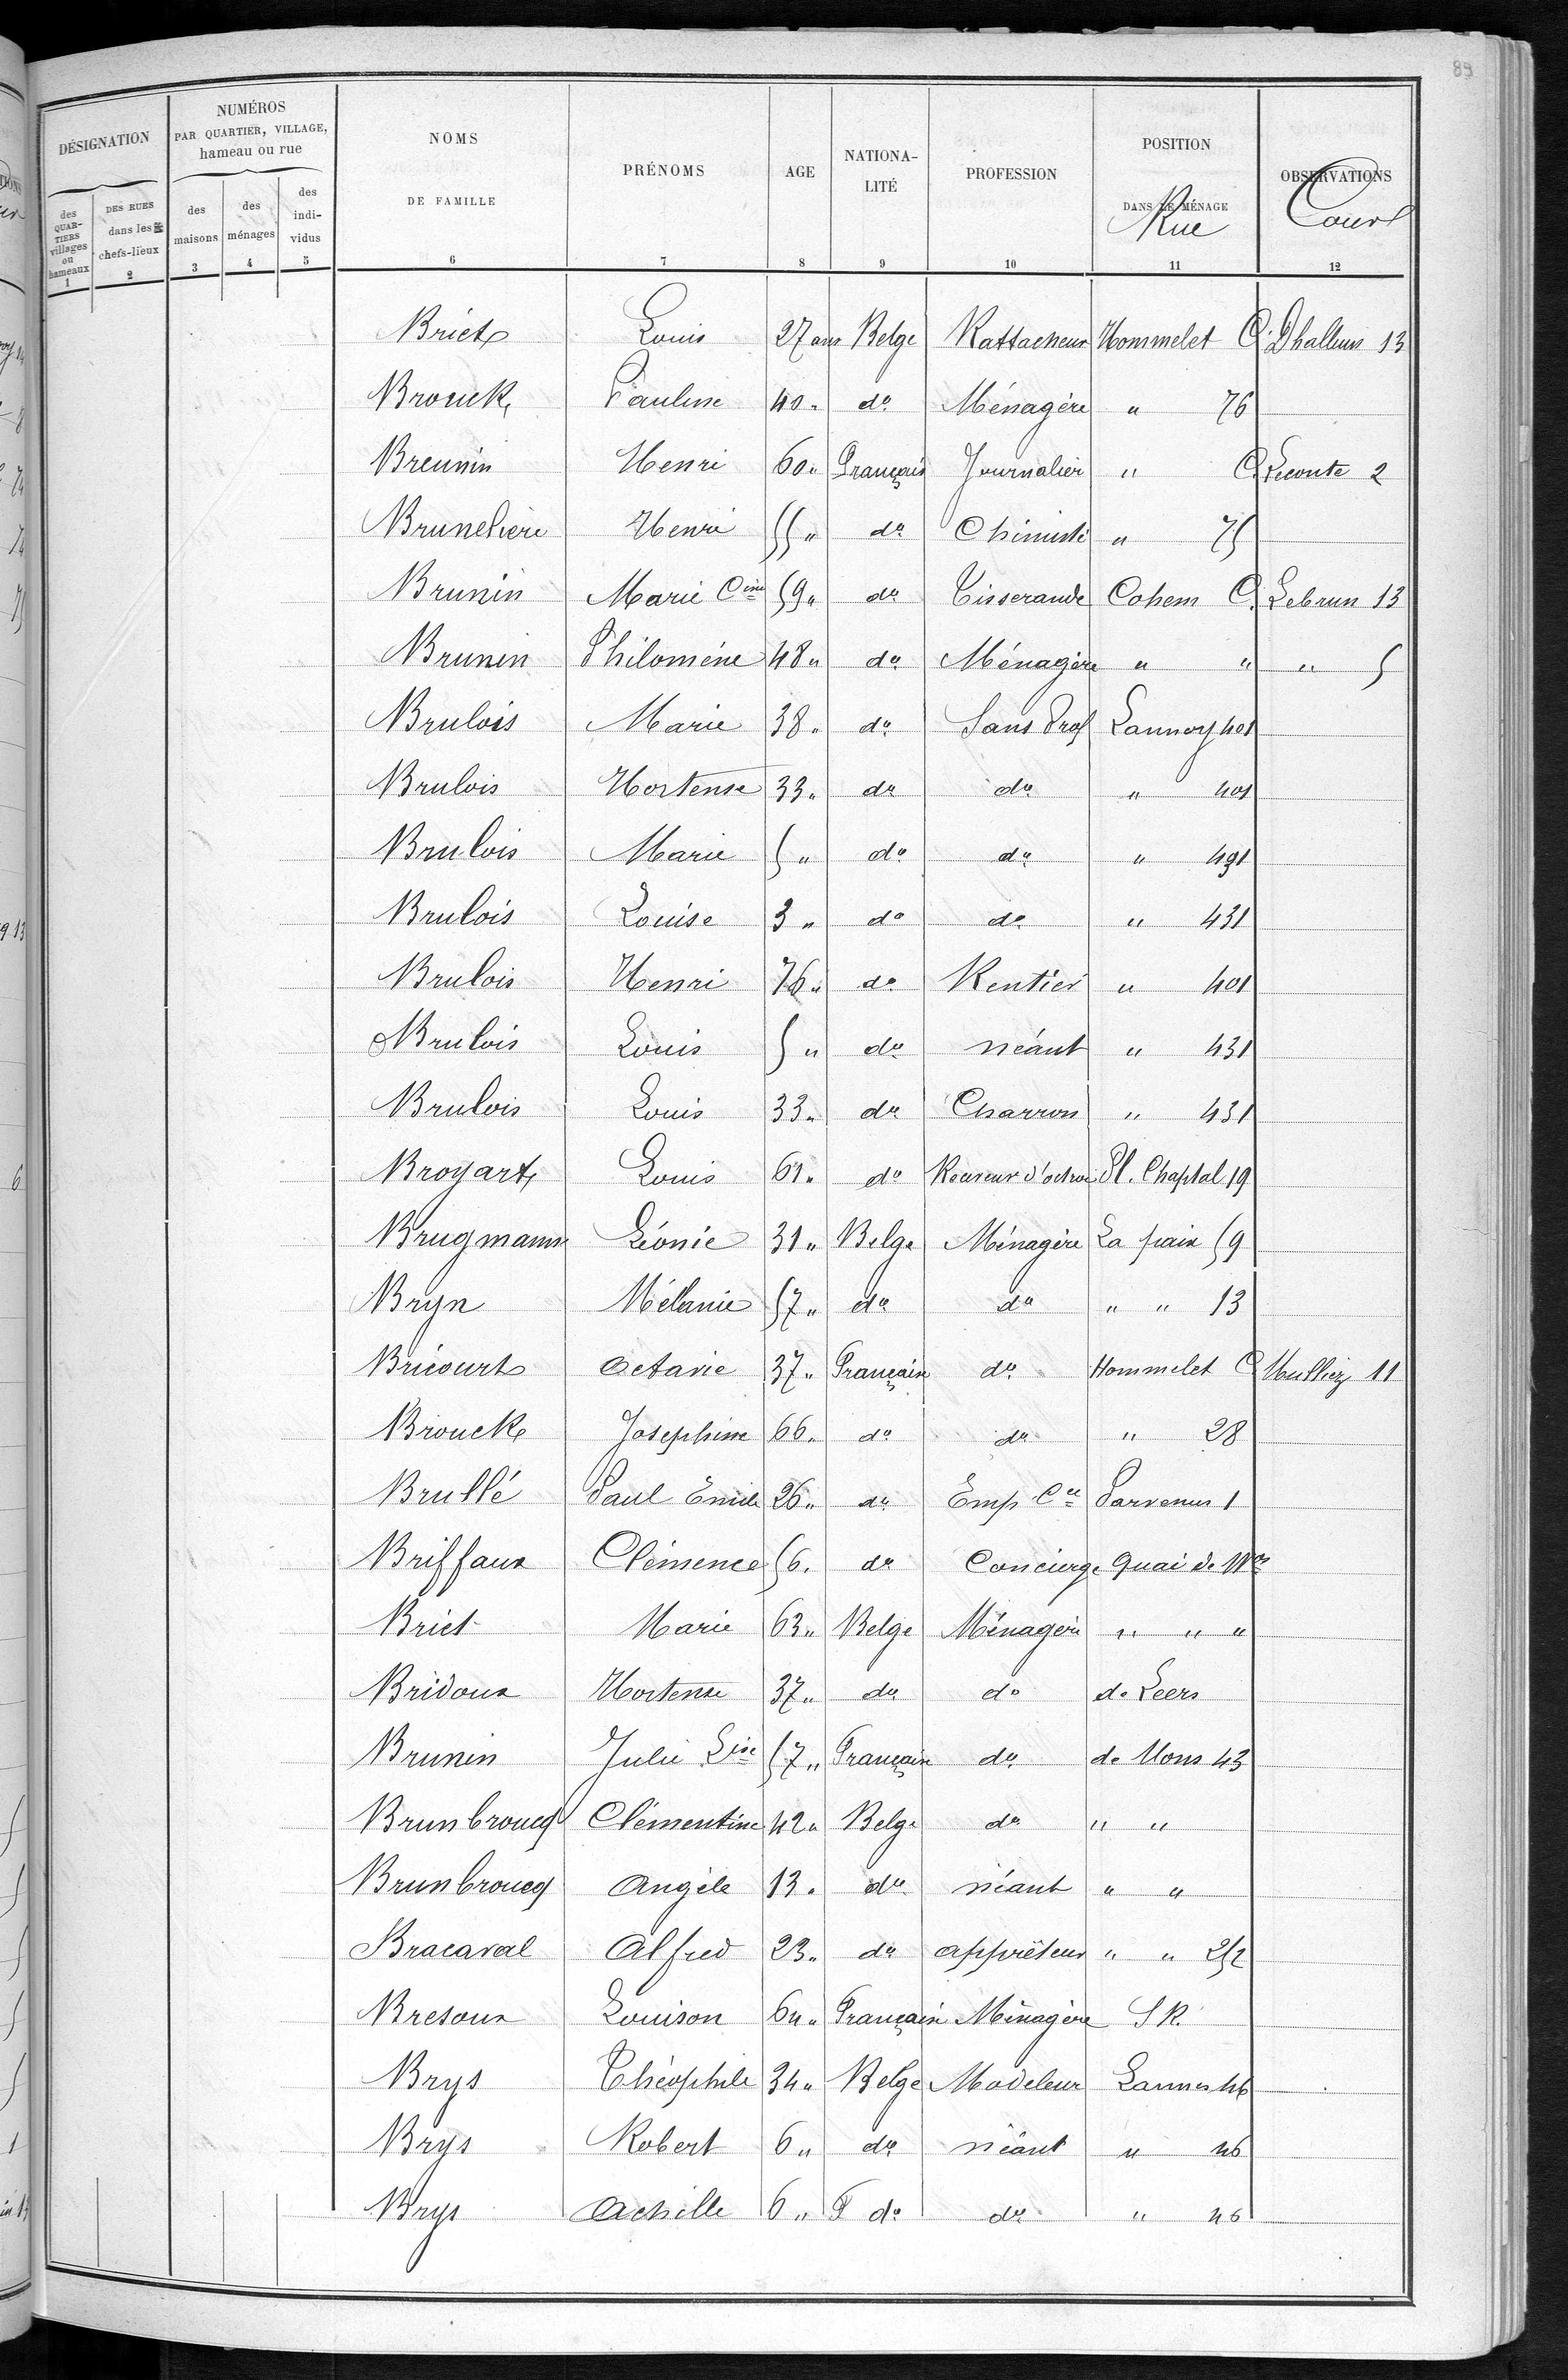 89
DÉSIGNATION
NUMÉROS
PAR QUARTIER, VILLAGE,
hameau ou rue
NOMS
DE FAMILLE
PRÉNOMS
AGE
NATIONA-
LITÉ
PROFESSION
POSITION
DANS LE MÉNAGE
Rue
OBSERVATIONS
Cour
des
QUAR-
TIERS
villages
ou
hameaux
DES RUES
dans les
chefs-lieux
des
maisons
des
ménages
des
indi-
vidus
1 2 3 4 5 6 7 8 9 10 11 12
Briet Louis 27 ans Belge Rattacheur Hommelet C. Dhalluin 13
Brouck Pauline 40 " do Ménagère " 76
Breunin Henri 60 " Français Journalier " C. Leconte 2
Brunelière Henri 55 " do Chimiste " 75
Brunin Marie Cine 59 " do Tisserande Cohem C. Lebrun 13
Brunin Philomène 48 " do Ménagère " " " 5
Brulois Marie 38 " do Sans Prof Lannoy 401
Brulois Hortense 33 " do do " 401
Brulois Marie 5 " do do " 431
Brulois Louise 3 " do do " 431
Brulois Henri 76 " do Rentier " 401
Brulois Louis 5 " do néant " 431
Brulois Louis 33 " do Charron " 431
Broyart Louis 61 " do Receveur d'octroi Pl. Chaptal 19
Brugmann Léonie 31 " Belge Ménagère La paix 59
Bryn Mélanie 57 " do do " " 13
Bricourt Octavie 37 " Française do Hommelet C. Mulliez 11
Brouck Josephine 66 " do do " 28
Brullé Paul Emile 26 " do Emp Ce Parvenus 1
Briffaux Clémence 56 " do Concierge Quai de
Briet Marie 63 " Belge Ménagère " " "
Bridoux Hortense 37 " do do de Leers
Brunin Julie Lise 57 " Française do de Mons 43
Brunbroucq Clémentine 42 " Belge do " "
Brunbroucq Angèle 13 " do néant " "
Bracaval Alfred 23 " do apprêteur " " 252
Bresoux Louison 64 " Française Ménagère S R.
Brys Théophile 34 " Belge Modeleur Lannes 46
Brys Robert 6 " do néant " 46
Brys Achille 6 " F do do " 46